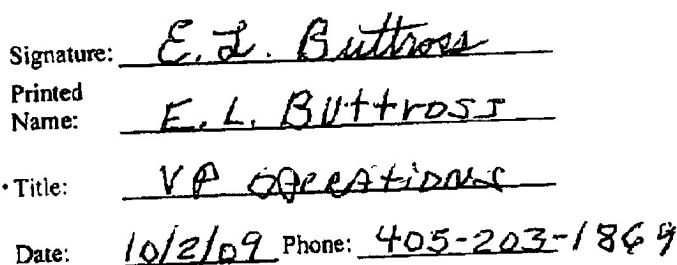 Signature: E. L. Buttross
Printed
Name: E. L. Buttross
• Title: VP Operations
Date: 10/2/09 Phone: 405-203-1869